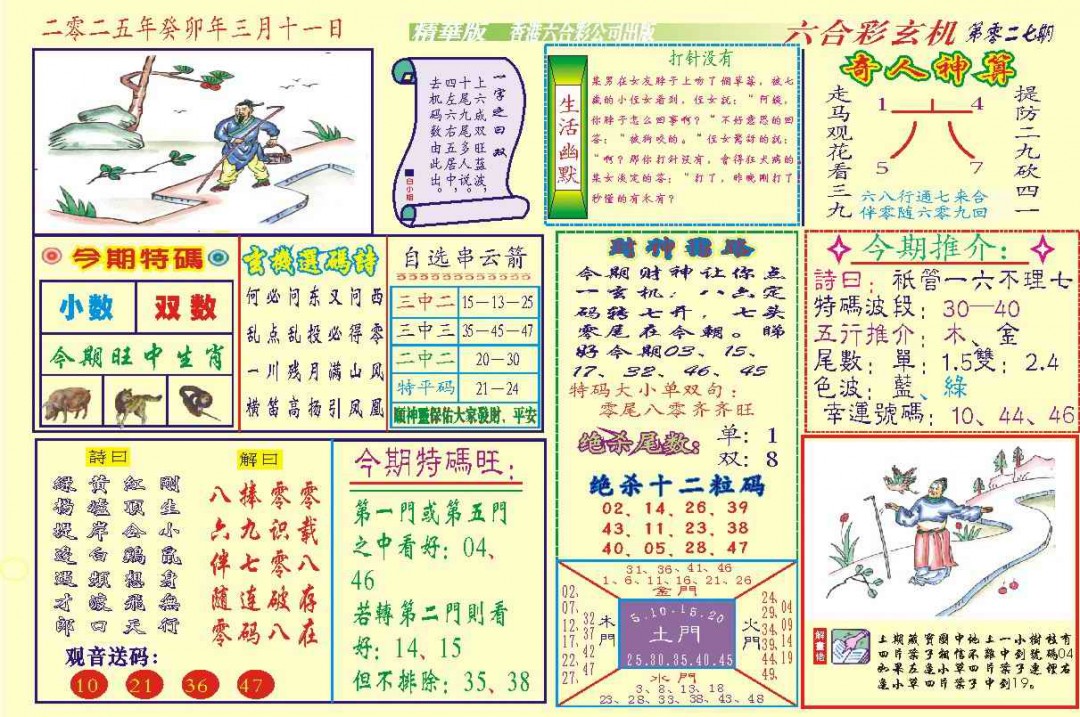 二零二五年癸卯年三月十一日
精華版 香港六合彩公司出版
六合彩玄机 第零二七期
一字之曰:双
上六成双旺蓝波,
十尾九尾五多说。
四左六右居人中,
去机码数由此出。
白小姐
生活幽默
打针没有
某男在女友脖子上吻了個草莓,被七
歲的小侄女看到,侄女説:“阿姨,
你脖子怎么回事啊?”不好意思的回
答:“被狗咬的。”侄女驚訝的説:
“啊?那你打針没有,會得狂犬病的
某女淡定的答:“打了,昨晚刚打了
秒懂的有木有?
奇人神算
走马观花看三九
提防二九砍四一
1 4
六
5 7
六八行通七来合
伴零随六零九回
今期特碼
小数 双数
今期旺中生肖
玄機選碼詩
何必问东又问西
乱点乱投必得零
一川残月满山风
横笛高扬引凤凰
自选串云箭
三中二 15—13—25
三中三 35—45—47
二中二 20—30
特平码 21—24
順神靈保佑大家發財、平安
今期财神让你点
一玄机:八六定
码转七开,七头
零尾在今朝。睇
好今期03、15、
17、32、46、45
特码大小单双句:
零尾八零齐齐旺
绝杀尾数: 单:1
双:8
绝杀十二粒码
02、14、26、39
43、11、23、38
40、05、28、47
今期推介:
詩曰:祇管一六不理七
特碼波段:30—40
五行推介:木、金
尾數:單:1.5雙:2.4
色波:藍、綠
幸運號碼:10、44、46
詩曰
剛生小鼠身無行
紅頂公鷄想飛天
黄墟岸白頻渡口
綠楊堤邊遇才郎
解曰
零载八存在
零识零破八
捧九七连码
八六伴随零
观音送码:
10 21 36 47
今期特碼旺:
第一門或第五門
之中看好:04、
46
若轉第二門則看
好:14、15
但不排除:35、38
31、36、41、46
1、6、11、16、21、26
金門
02、07、12、17、22、27、
32、37、42、47
木門
5.10.15.20
土門
25.30.35.40.45
火門
24、29、34、39、44、49
04、09、14、19
水門
3、8、13、18
23、28、33、38、43、48
解畫語
土期藏寶圖中地上一小樹枝有
四片葉子相信不難中到號碼04
如果左邊小草四片葉子連裡右
邊小草四片葉子中到19。